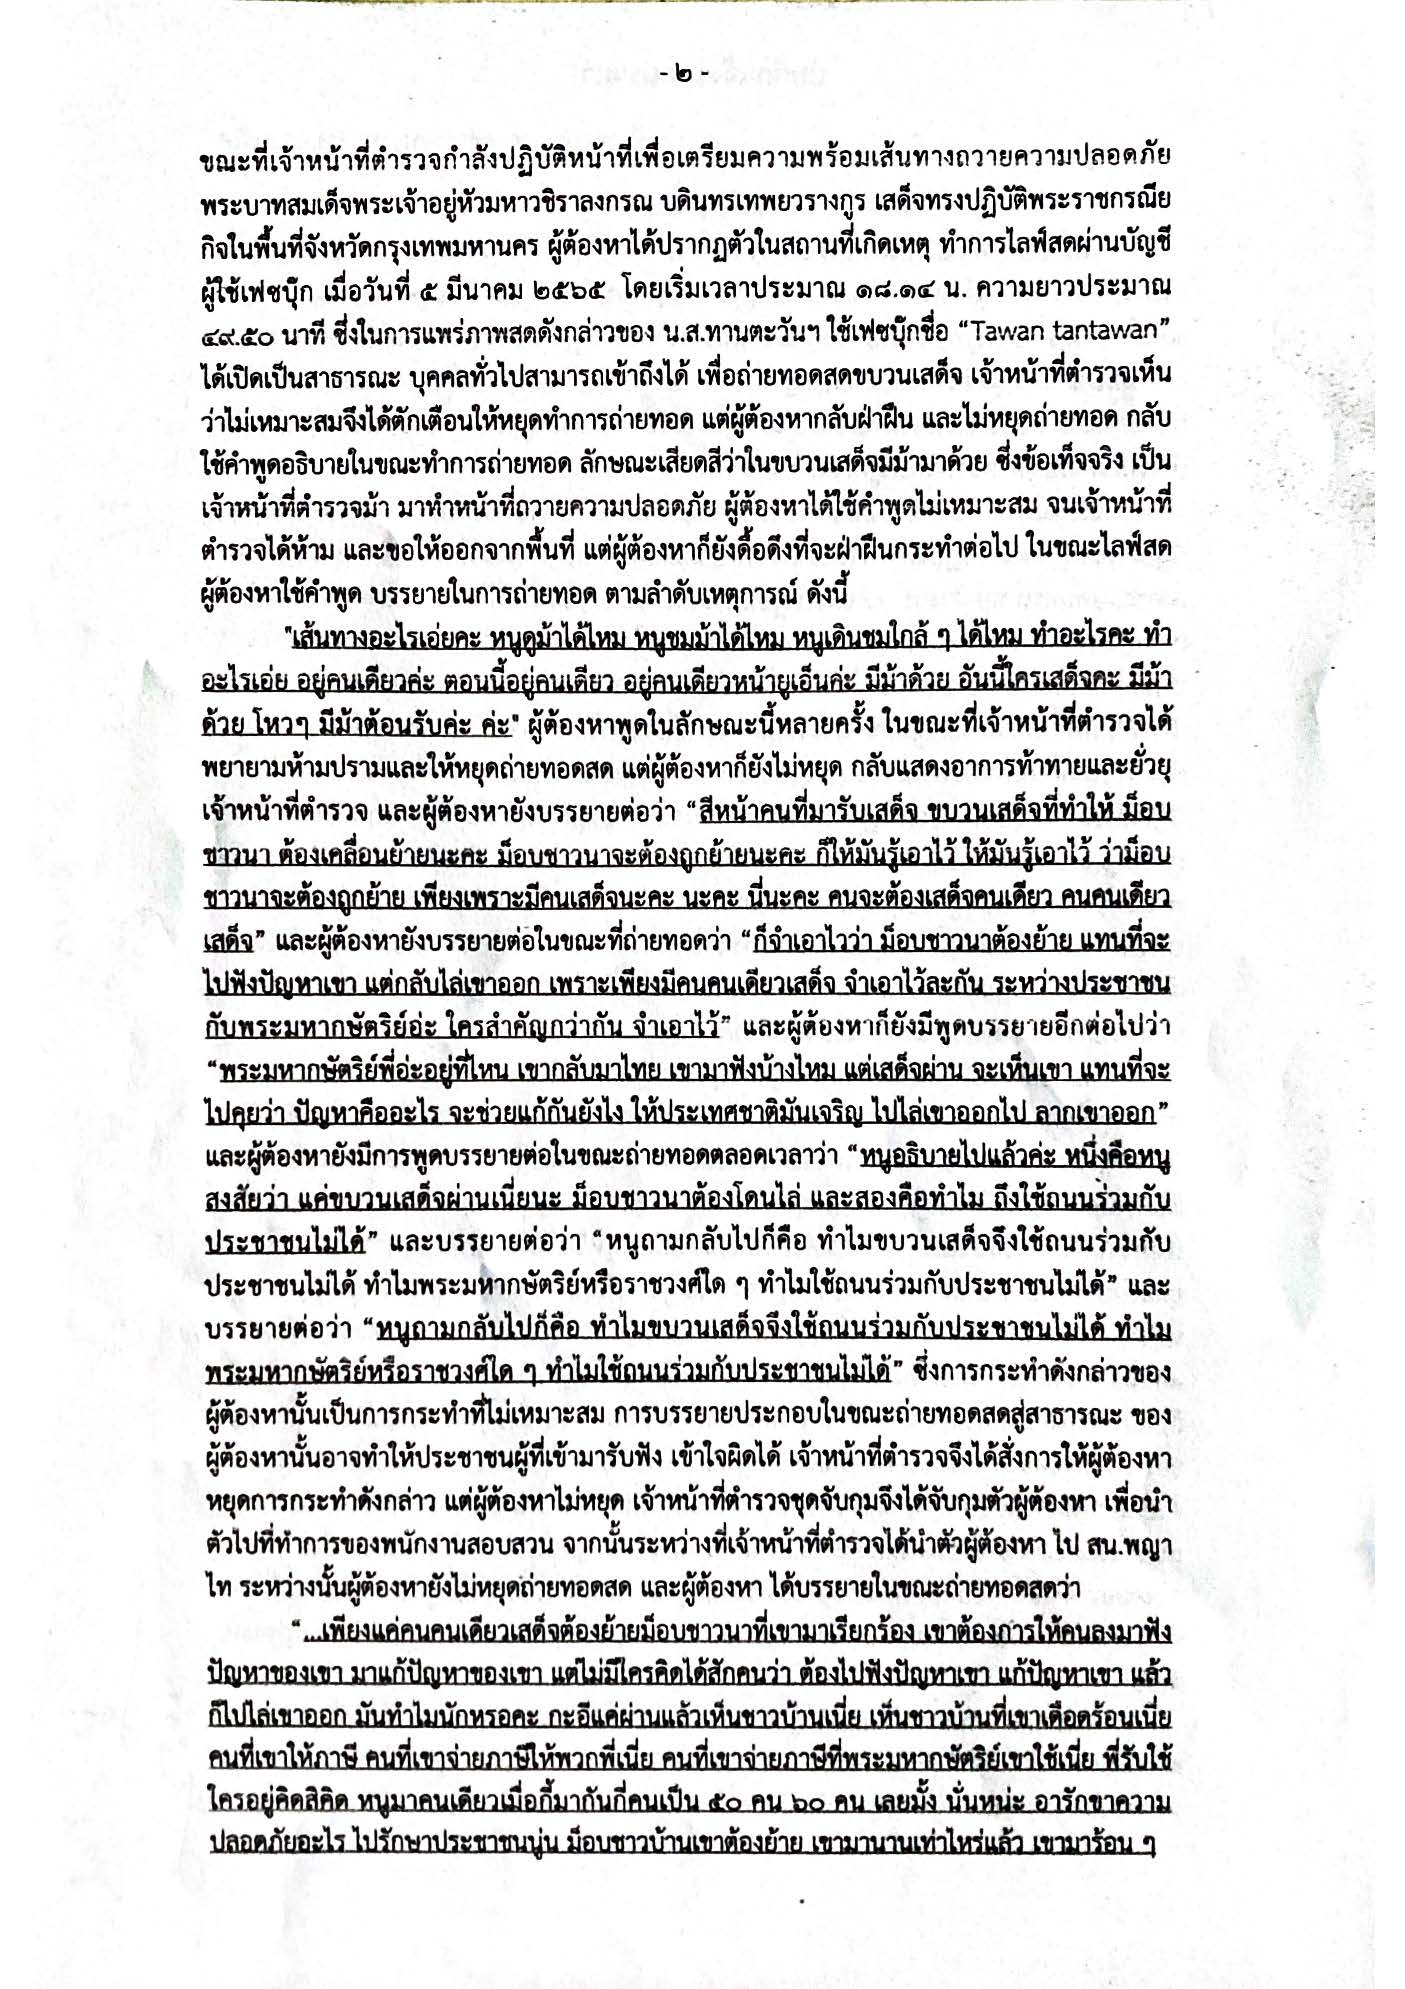 - ๒ -
ขณะที่เจ้าหน้าที่ตำรวจกำลังปฏิบัติหน้าที่เพื่อเตรียมความพร้อมเส้นทางถวายความปลอดภัย
พระบาทสมเด็จพระเจ้าอยู่หัวมหาวชิราลงกรณ บดินทรเทพยวรางกูร เสด็จทรงปฏิบัติพระราชกรณีย
กิจในพื้นที่จังหวัดกรุงเทพมหานคร ผู้ต้องหาได้ปรากฏตัวในสถานที่เกิดเหตุ ทำการไลฟ์สดผ่านบัญชี
ผู้ใช้เฟซบุ๊ก เมื่อวันที่ ๕ มีนาคม ๒๕๖๕ โดยเริ่มเวลาประมาณ ๑๘.๑๔ น. ความยาวประมาณ
๔๙.๕๐ นาที ซึ่งในการแพร่ภาพสดดังกล่าวของ น.ส.ทานตะวันฯ ใช้เฟซบุ๊กชื่อ “Tawan tantawan”
ได้เปิดเป็นสาธารณะ บุคคลทั่วไปสามารถเข้าถึงได้ เพื่อถ่ายทอดสดขบวนเสด็จ เจ้าหน้าที่ตำรวจเห็น
ว่าไม่เหมาะสมจึงได้ตักเตือนให้หยุดทำการถ่ายทอด แต่ผู้ต้องหากลับฝ่าฝืน และไม่หยุดถ่ายทอด กลับ
ใช้คำพูดอธิบายในขณะทำการถ่ายทอด ลักษณะเสียดสีว่าในขบวนเสด็จมีม้ามาด้วย ซึ่งข้อเท็จจริง เป็น
เจ้าหน้าที่ตำรวจม้า มาทำหน้าที่ถวายความปลอดภัย ผู้ต้องหาได้ใช้คำพูดไม่เหมาะสม จนเจ้าหน้าที่
ตำรวจได้ห้าม และขอให้ออกจากพื้นที่ แต่ผู้ต้องหาก็ยังดื้อดึงที่จะฝ่าฝืนกระทำต่อไป ในขณะไลฟ์สด
ผู้ต้องหาใช้คำพูด บรรยายในการถ่ายทอด ตามลำดับเหตุการณ์ ดังนี้
"เส้นทางอะไรเอ่ยคะ หนูดูม้าได้ไหม หนูชมม้าได้ไหม หนูเดินชมใกล้ ๆ ได้ไหม ทำอะไรคะ ทำ
อะไรเอ่ย อยู่คนเดียวค่ะ ตอนนี้อยู่คนเดียว อยู่คนเดียวหน้ายูเอ็นค่ะ มีม้าด้วย อันนี้ใครเสด็จคะ มีม้า
ด้วย โหวๆ มีม้าต้อนรับค่ะ ค่ะ" ผู้ต้องหาพูดในลักษณะนี้หลายครั้ง ในขณะที่เจ้าหน้าที่ตำรวจได้
พยายามห้ามปรามและให้หยุดถ่ายทอดสด แต่ผู้ต้องหาก็ยังไม่หยุด กลับแสดงอาการท้าทายและยั่วยุ
เจ้าหน้าที่ตำรวจ และผู้ต้องหายังบรรยายต่อว่า “สีหน้าคนที่มารับเสด็จ ขบวนเสด็จที่ทำให้ ม็อบ
ชาวนา ต้องเคลื่อนย้ายนะคะ ม็อบชาวนาจะต้องถูกย้ายนะคะ ก็ให้มันรู้เอาไว้ ให้มันรู้เอาไว้ ว่าม็อบ
ชาวนาจะต้องถูกย้าย เพียงเพราะมีคนเสด็จนะคะ นะคะ นี่นะคะ คนจะต้องเสด็จคนเดียว คนคนเดียว
เสด็จ” และผู้ต้องหายังบรรยายต่อในขณะที่ถ่ายทอดว่า “ก็จำเอาไวว่า ม็อบชาวนาต้องย้าย แทนที่จะ
ไปฟังปัญหาเขา แต่กลับไล่เขาออก เพราะเพียงมีคนคนเดียวเสด็จ จำเอาไว้ละกัน ระหว่างประชาชน
กับพระมหากษัตริย์อ่ะ ใครสำคัญกว่ากัน จำเอาไว้” และผู้ต้องหาก็ยังมีพูดบรรยายอีกต่อไปว่า
“พระมหากษัตริย์พี่อ่ะอยู่ที่ไหน เขากลับมาไทย เขามาฟังบ้างไหม แต่เสด็จผ่าน จะเห็นเขา แทนที่จะ
ไปคุยว่า ปัญหาคืออะไร จะช่วยแก้กันยังไง ให้ประเทศชาติมันเจริญ ไปไล่เขาออกไป ลากเขาออก”
และผู้ต้องหายังมีการพูดบรรยายต่อในขณะถ่ายทอดตลอดเวลาว่า “หนูอธิบายไปแล้วค่ะ หนึ่งคือหนู
สงสัยว่า แค่ขบวนเสด็จผ่านเนี่ยนะ ม็อบชาวนาต้องโดนไล่ และสองคือทำไม ถึงใช้ถนนร่วมกับ
ประชาชนไม่ได้” และบรรยายต่อว่า “หนูถามกลับไปก็คือ ทำไมขบวนเสด็จจึงใช้ถนนร่วมกับ
ประชาชนไม่ได้ ทำไมพระมหากษัตริย์หรือราชวงศ์ใด ๆ ทำไมใช้ถนนร่วมกับประชาชนไม่ได้” และ
บรรยายต่อว่า “หนูถามกลับไปก็คือ ทำไมขบวนเสด็จจึงใช้ถนนร่วมกับประชาชนไม่ได้ ทำไม
พระมหากษัตริย์หรือราชวงศ์ใด ๆ ทำไมใช้ถนนร่วมกับประชาชนไม่ได้” ซึ่งการกระทำดังกล่าวของ
ผู้ต้องหานั้นเป็นการกระทำที่ไม่เหมาะสม การบรรยายประกอบในขณะถ่ายทอดสดสู่สาธารณะ ของ
ผู้ต้องหานั้นอาจทำให้ประชาชนผู้ที่เข้ามารับฟัง เข้าใจผิดได้ เจ้าหน้าที่ตำรวจจึงได้สั่งการให้ผู้ต้องหา
หยุดการกระทำดังกล่าว แต่ผู้ต้องหาไม่หยุด เจ้าหน้าที่ตำรวจชุดจับกุมจึงได้จับกุมตัวผู้ต้องหา เพื่อนำ
ตัวไปที่ทำการของพนักงานสอบสวน จากนั้นระหว่างที่เจ้าหน้าที่ตำรวจได้นำตัวผู้ต้องหา ไป สน.พญา
ไท ระหว่างนั้นผู้ต้องหายังไม่หยุดถ่ายทอดสด และผู้ต้องหา ได้บรรยายในขณะถ่ายทอดสดว่า
“...เพียงแค่คนคนเดียวเสด็จต้องย้ายม็อบชาวนาที่เขามาเรียกร้อง เขาต้องการให้คนลงมาฟัง
ปัญหาของเขา มาแก้ปัญหาของเขา แต่ไม่มีใครคิดได้สักคนว่า ต้องไปฟังปัญหาเขา แก้ปัญหาเขา แล้ว
ก็ไปไล่เขาออก มันทำไมนักหรอคะ กะอีแค่ผ่านแล้วเห็นชาวบ้านเนี่ย เห็นชาวบ้านที่เขาเดือดร้อนเนี่ย
คนที่เขาให้ภาษี คนที่เขาจ่ายภาษีให้พวกพี่เนี่ย คนที่เขาจ่ายภาษีที่พระมหากษัตริย์เขาใช้เนี่ย พี่รับใช้
ใครอยู่คิดสิคิด หนูมาคนเดียวเมื่อกี้มากันกี่คนเป็น ๕๐ คน ๖๐ คน เลยมั้ง นั่นหน่ะ อารักขาความ
ปลอดภัยอะไร ไปรักษาประชาชนนู่น ม็อบชาวบ้านเขาต้องย้าย เขามานานเท่าไหร่แล้ว เขามาร้อน ๆ